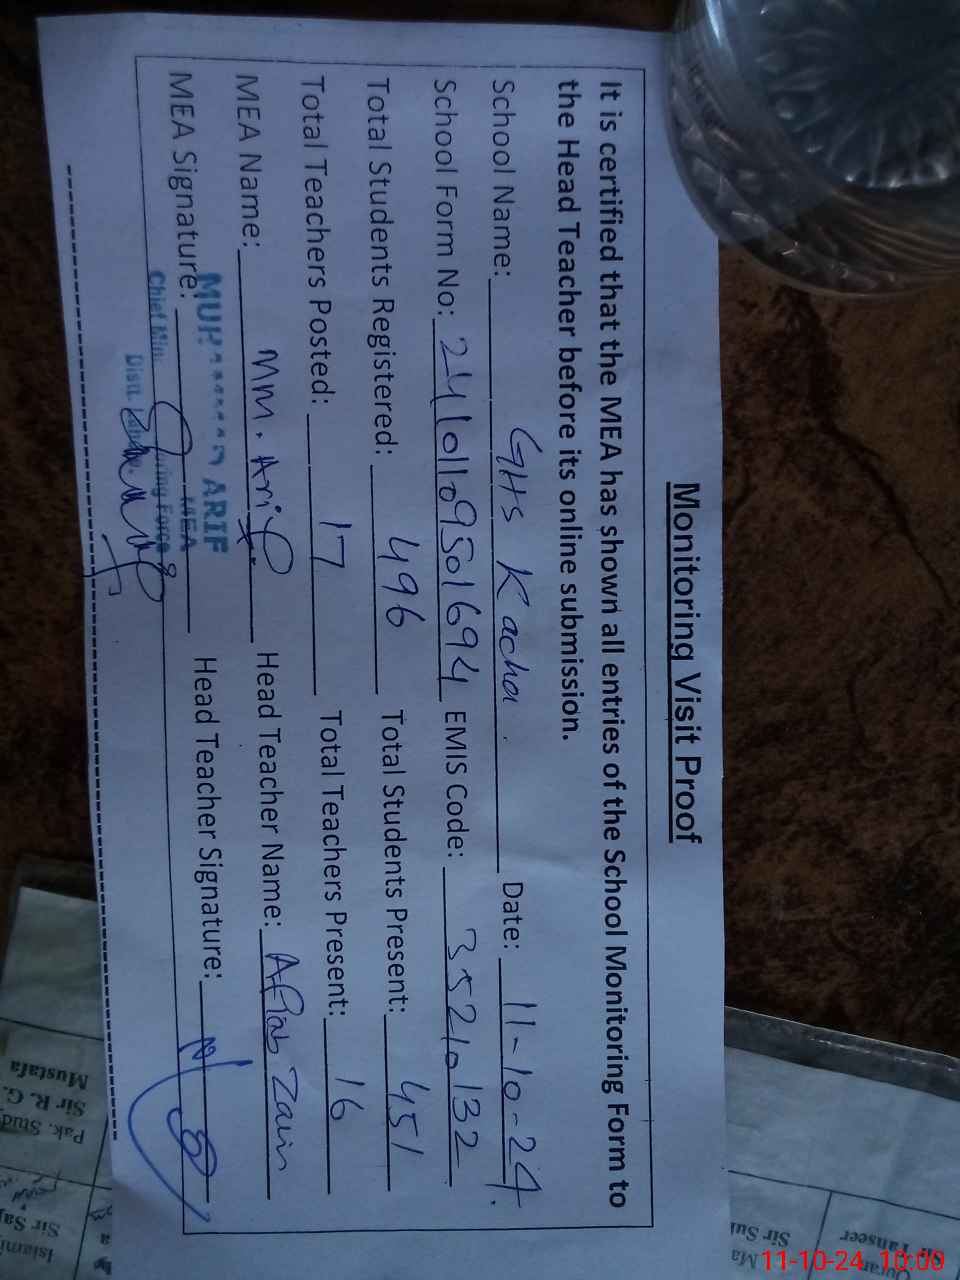 Monitoring Visit Proof
It is certified that the MEA has shown all entries of the School Monitoring Form to
the Head Teacher before its online submission.
School Name: GHS Kacha Date: 11-10-24
School Form No: EMIS Code: 35210132
Total Students Registered: 496 Total Students Present: 451
Total Teachers Posted: 17 Total Teachers Present: 16
MEA Name: MM. Arif Head Teacher Name: Aftab Zain
MEA Signature: Head Teacher Signature:
ARIF
MEA
Mustafa
Sir R. G.
Pak. Stud
Sir Tanseer
11-10-24 10:00